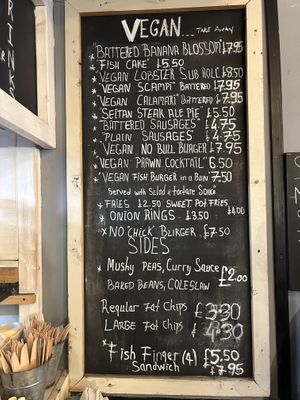 VEGAN... TAKE Away
"BATTERED BANANA BLOSSOM" £7.95
* "FISH CAKE" £5.50
* "VEGAN LOBSTER SUB ROLL" £8.50
* "VEGAN SCAMPI" BATTERED £7.95
* "VEGAN CALAMARI" BATTERED £7.95
* SEITAN STEAK ALE PIE £5.50
* "BATTERED SAUSAGES" £4.75
* "PLAIN SAUSAGES" £4.75
* VEGAN NO BULL BURGER £7.95
* VEGAN "PRAWN COCKTAIL" 6.50
* "VEGAN FISH BURGER in a Bun" 7.50
Served with Salad & tartare Sauce
* FRIES £2.50 SWEET POT. FRIES
* ONION RINGS £3.50 £4.00
* NO "CHICK" BURGER £7.50
SIDES
* Mushy PEAS, Curry Sauce
£2.00
BAKED BEANS, COLESLAW
Regular Fat Chips £3.30
LARGE Fat Chips £4.30
* Fish Finger (4) £5.50
Sandwich £7.95
RINK